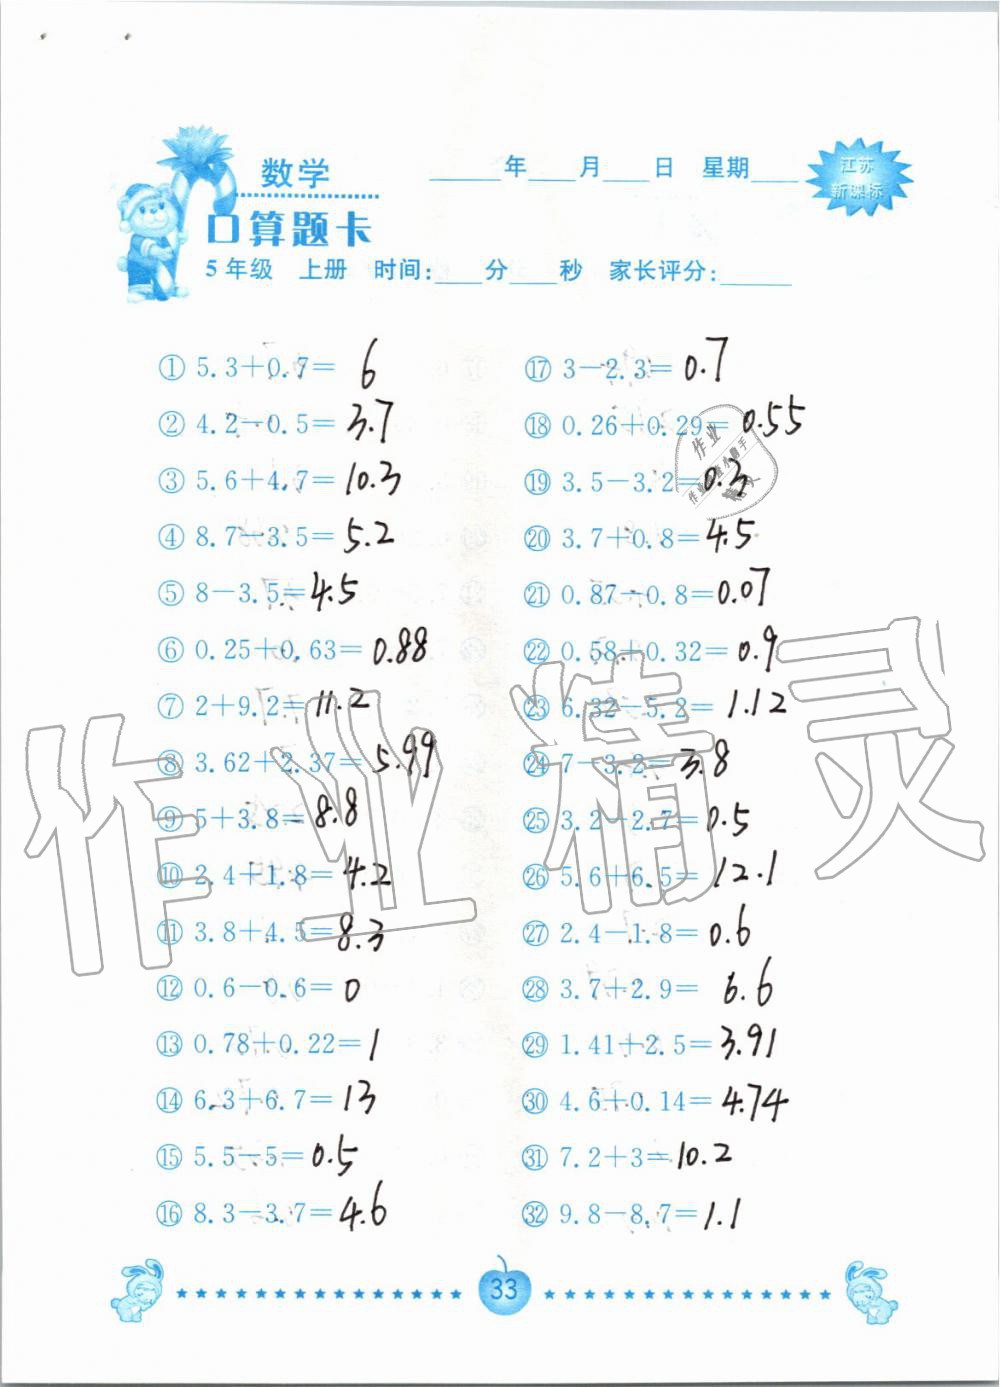 数学
____年____月____日 星期____
江苏
新课标
口算题卡
5年级 上册 时间:____分____秒 家长评分:______
① 5.3+0.7= 6
② 4.2-0.5= 3.7
③ 5.6+4.7= 10.3
④ 8.7-3.5= 5.2
⑤ 8-3.5= 4.5
⑥ 0.25+0.63= 0.88
⑦ 2+9.2= 11.2
⑧ 3.62+2.37= 5.99
⑨ 5+3.8= 8.8
⑩ 2.4+1.8= 4.2
⑪ 3.8+4.5= 8.3
⑫ 0.6-0.6= 0
⑬ 0.78+0.22= 1
⑭ 6.3+6.7= 13
⑮ 5.5-5= 0.5
⑯ 8.3-3.7= 4.6
⑰ 3-2.3= 0.7
⑱ 0.26+0.29= 0.55
⑲ 3.5-3.2= 0.3
⑳ 3.7+0.8= 4.5
㉑ 0.87-0.8= 0.07
㉒ 0.58+0.32= 0.9
㉓ 6.32-5.2= 1.12
㉔ 7-3.2= 3.8
㉕ 3.2-2.7= 0.5
㉖ 5.6+6.5= 12.1
㉗ 2.4-1.8= 0.6
㉘ 3.7+2.9= 6.6
㉙ 1.41+2.5= 3.91
㉚ 4.6+0.14= 4.74
㉛ 7.2+3= 10.2
㉜ 9.8-8.7= 1.1
作业精灵
作业
33